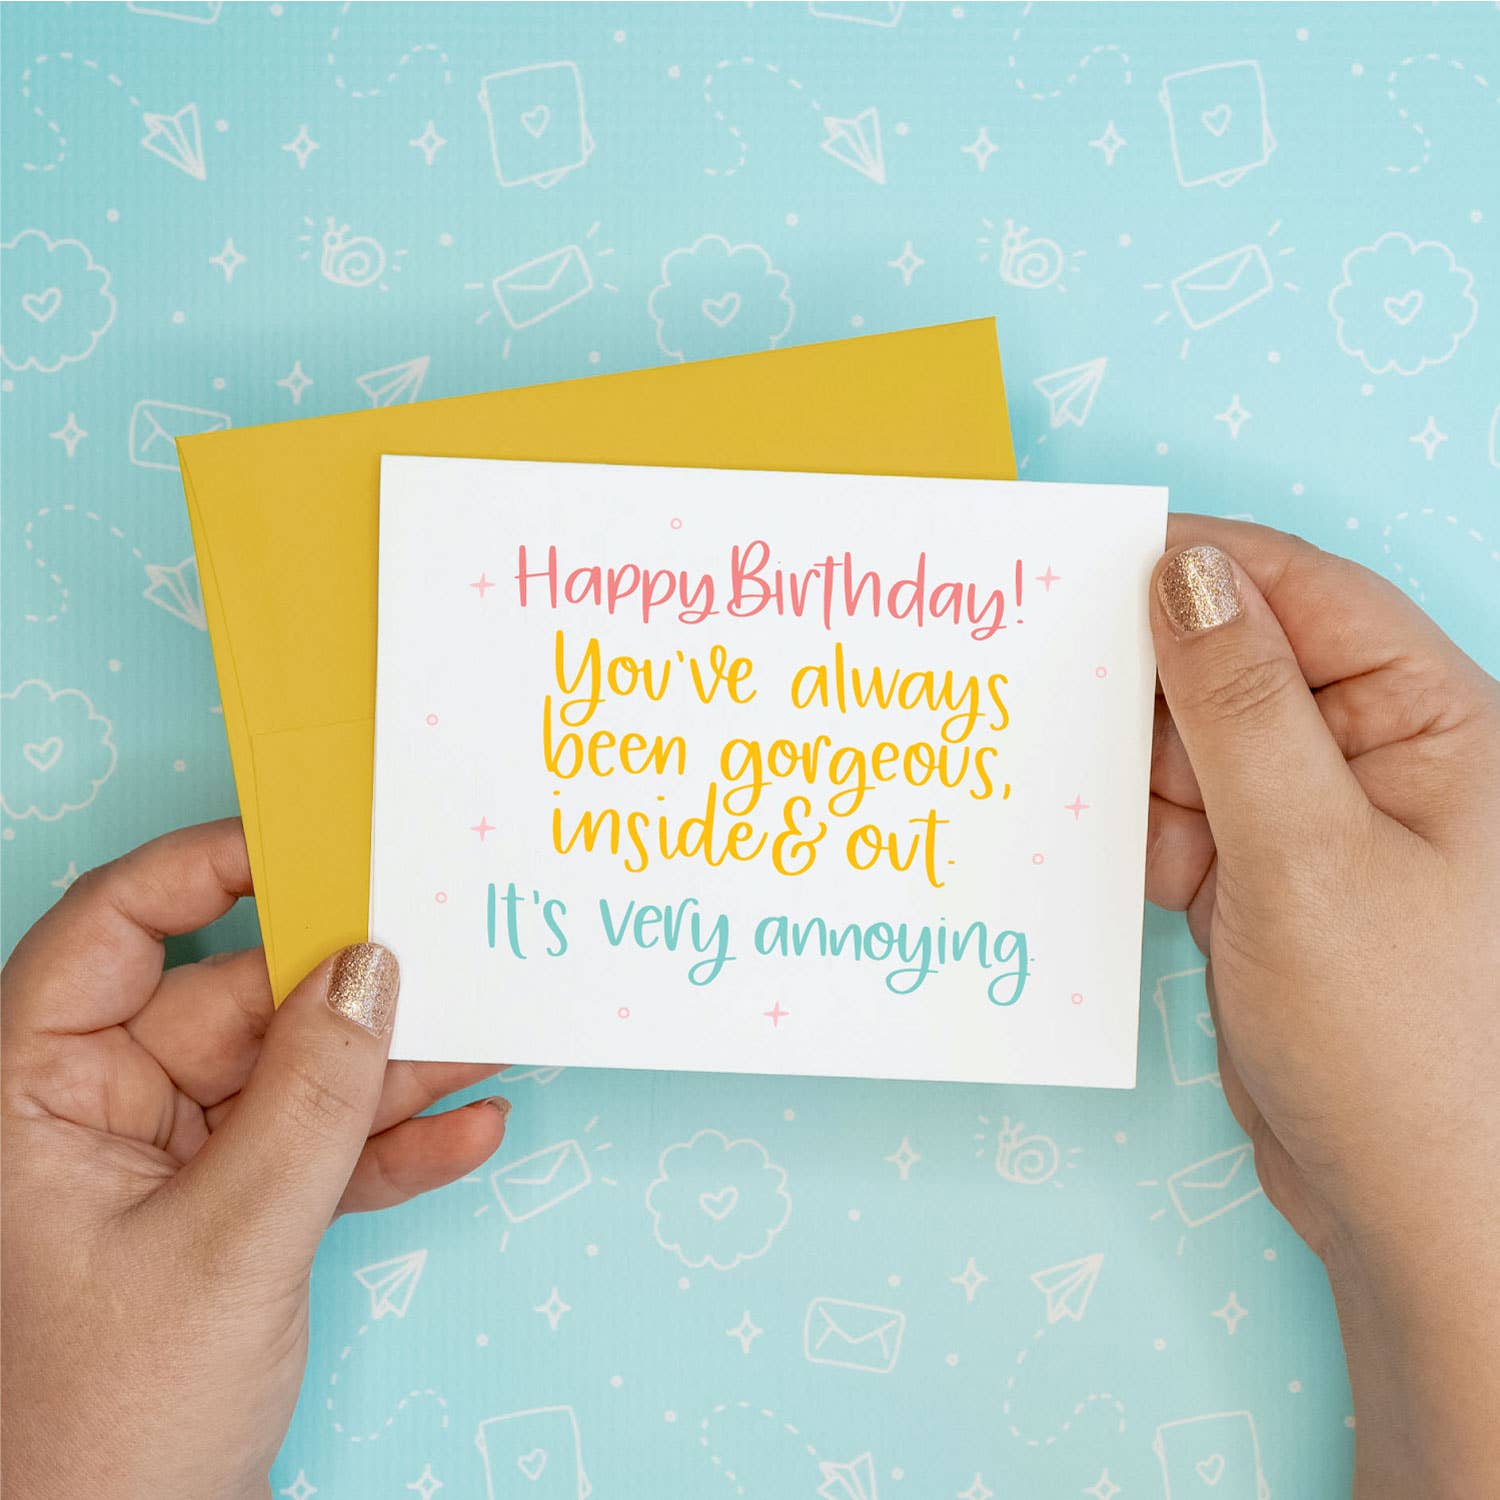 Happy Birthday!
You've always
been gorgeous,
inside & out.
It's very annoying.